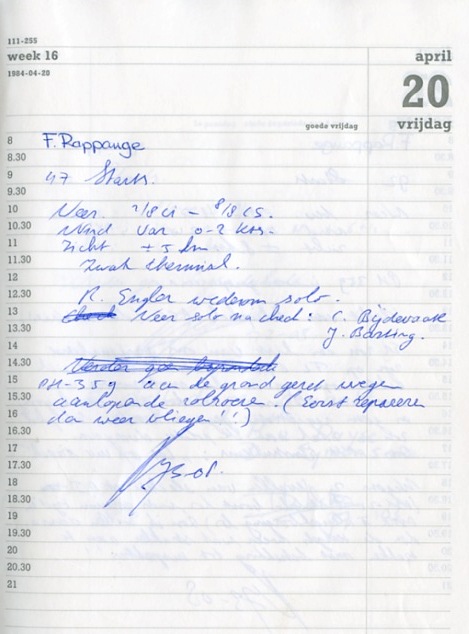 111-255
week 16
april
1984-04-20
20
goede vrijdag
vrijdag
8
F. Rappange
8.30
9
47 Starts.
9.30
10
Weer
10.30
Wind var 0-2 kts.
11
Zicht ± 5 km
11.30
Zwak thermiek.
12
12.30
R. Engler wederom solo.
13
Weer solo na check: C. Bijdevaate
13.30
J. Basting.
14
14.30
15
PH-359 aan de grond gezet wegens
15.30
aanlopende rolroeren. (Eerst repareren
16
dan weer vliegen!!)
16.30
17
17.30
18
18.30
19
19.30
20
20.30
21